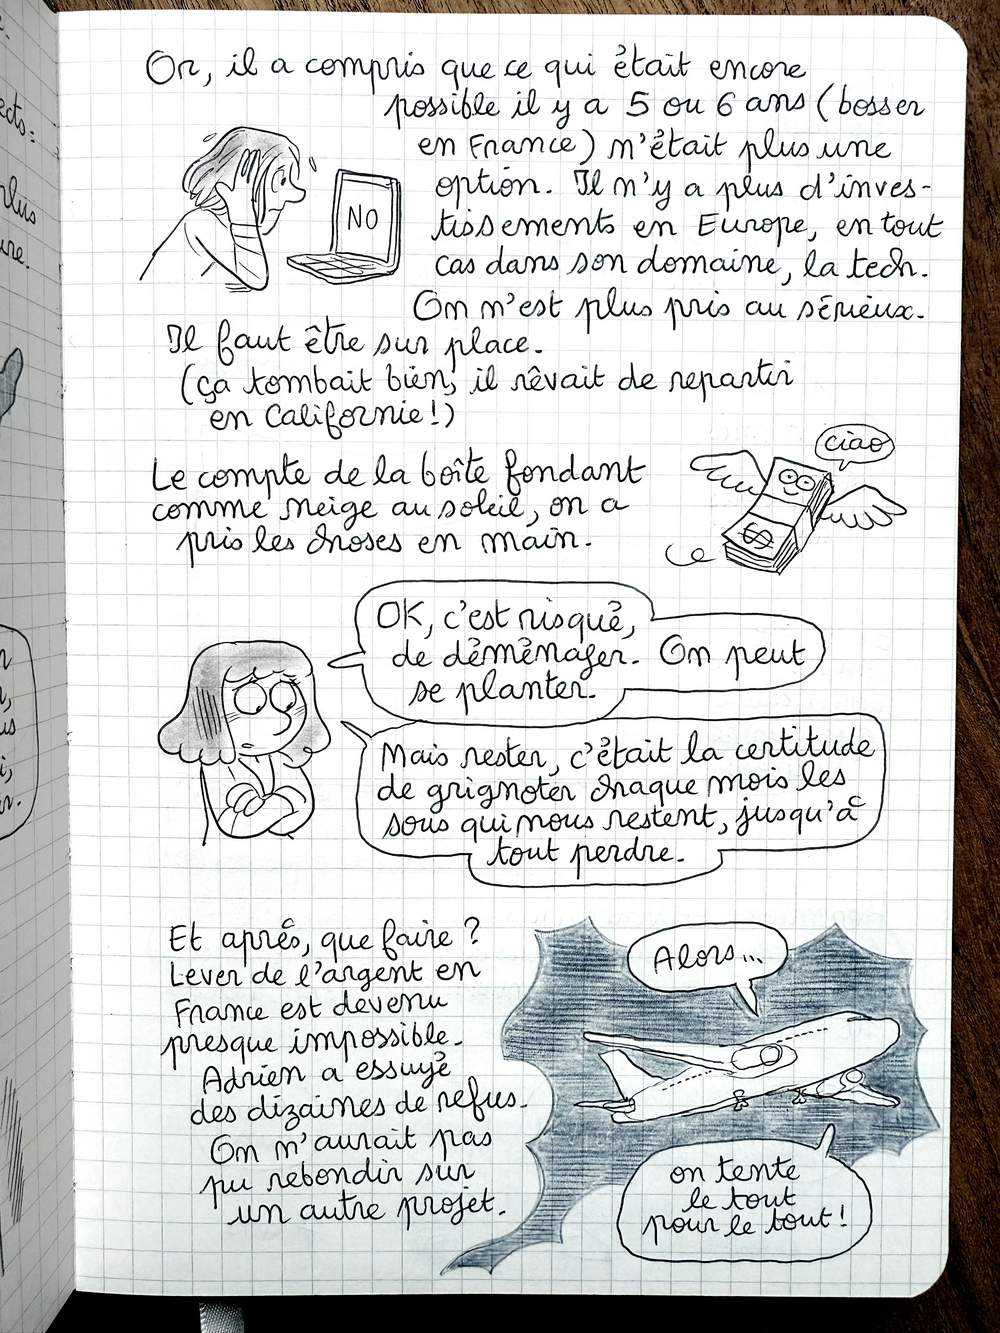 Or, il a compris que ce qui était encore
possible il y a 5 ou 6 ans (bosser
en France) n'était plus une
option. Il n'y a plus d'inves-
tissements en Europe, en tout
cas dans son domaine, la tech.
On n'est plus pris au sérieux.
NO
Il faut être sur place.
(ça tombait bien, il rêvait de repartir
en Californie!)
Le compte de la boîte fondant
comme neige au soleil, on a
pris les choses en main.
ciao
$
OK, c'est risqué,
de déménager. On peut
se planter.
Mais rester, c'était la certitude
de grignoter chaque mois les
sous qui nous restent, jusqu'à
tout perdre.
Et après, que faire ?
Lever de l'argent en
France est devenu
presque impossible.
Adrien a essuyé
des dizaines de refus.
On n'aurait pas
pu rebondir sur
un autre projet.
Alors...
on tente
le tout
pour le tout !
ects-
plus
ure.